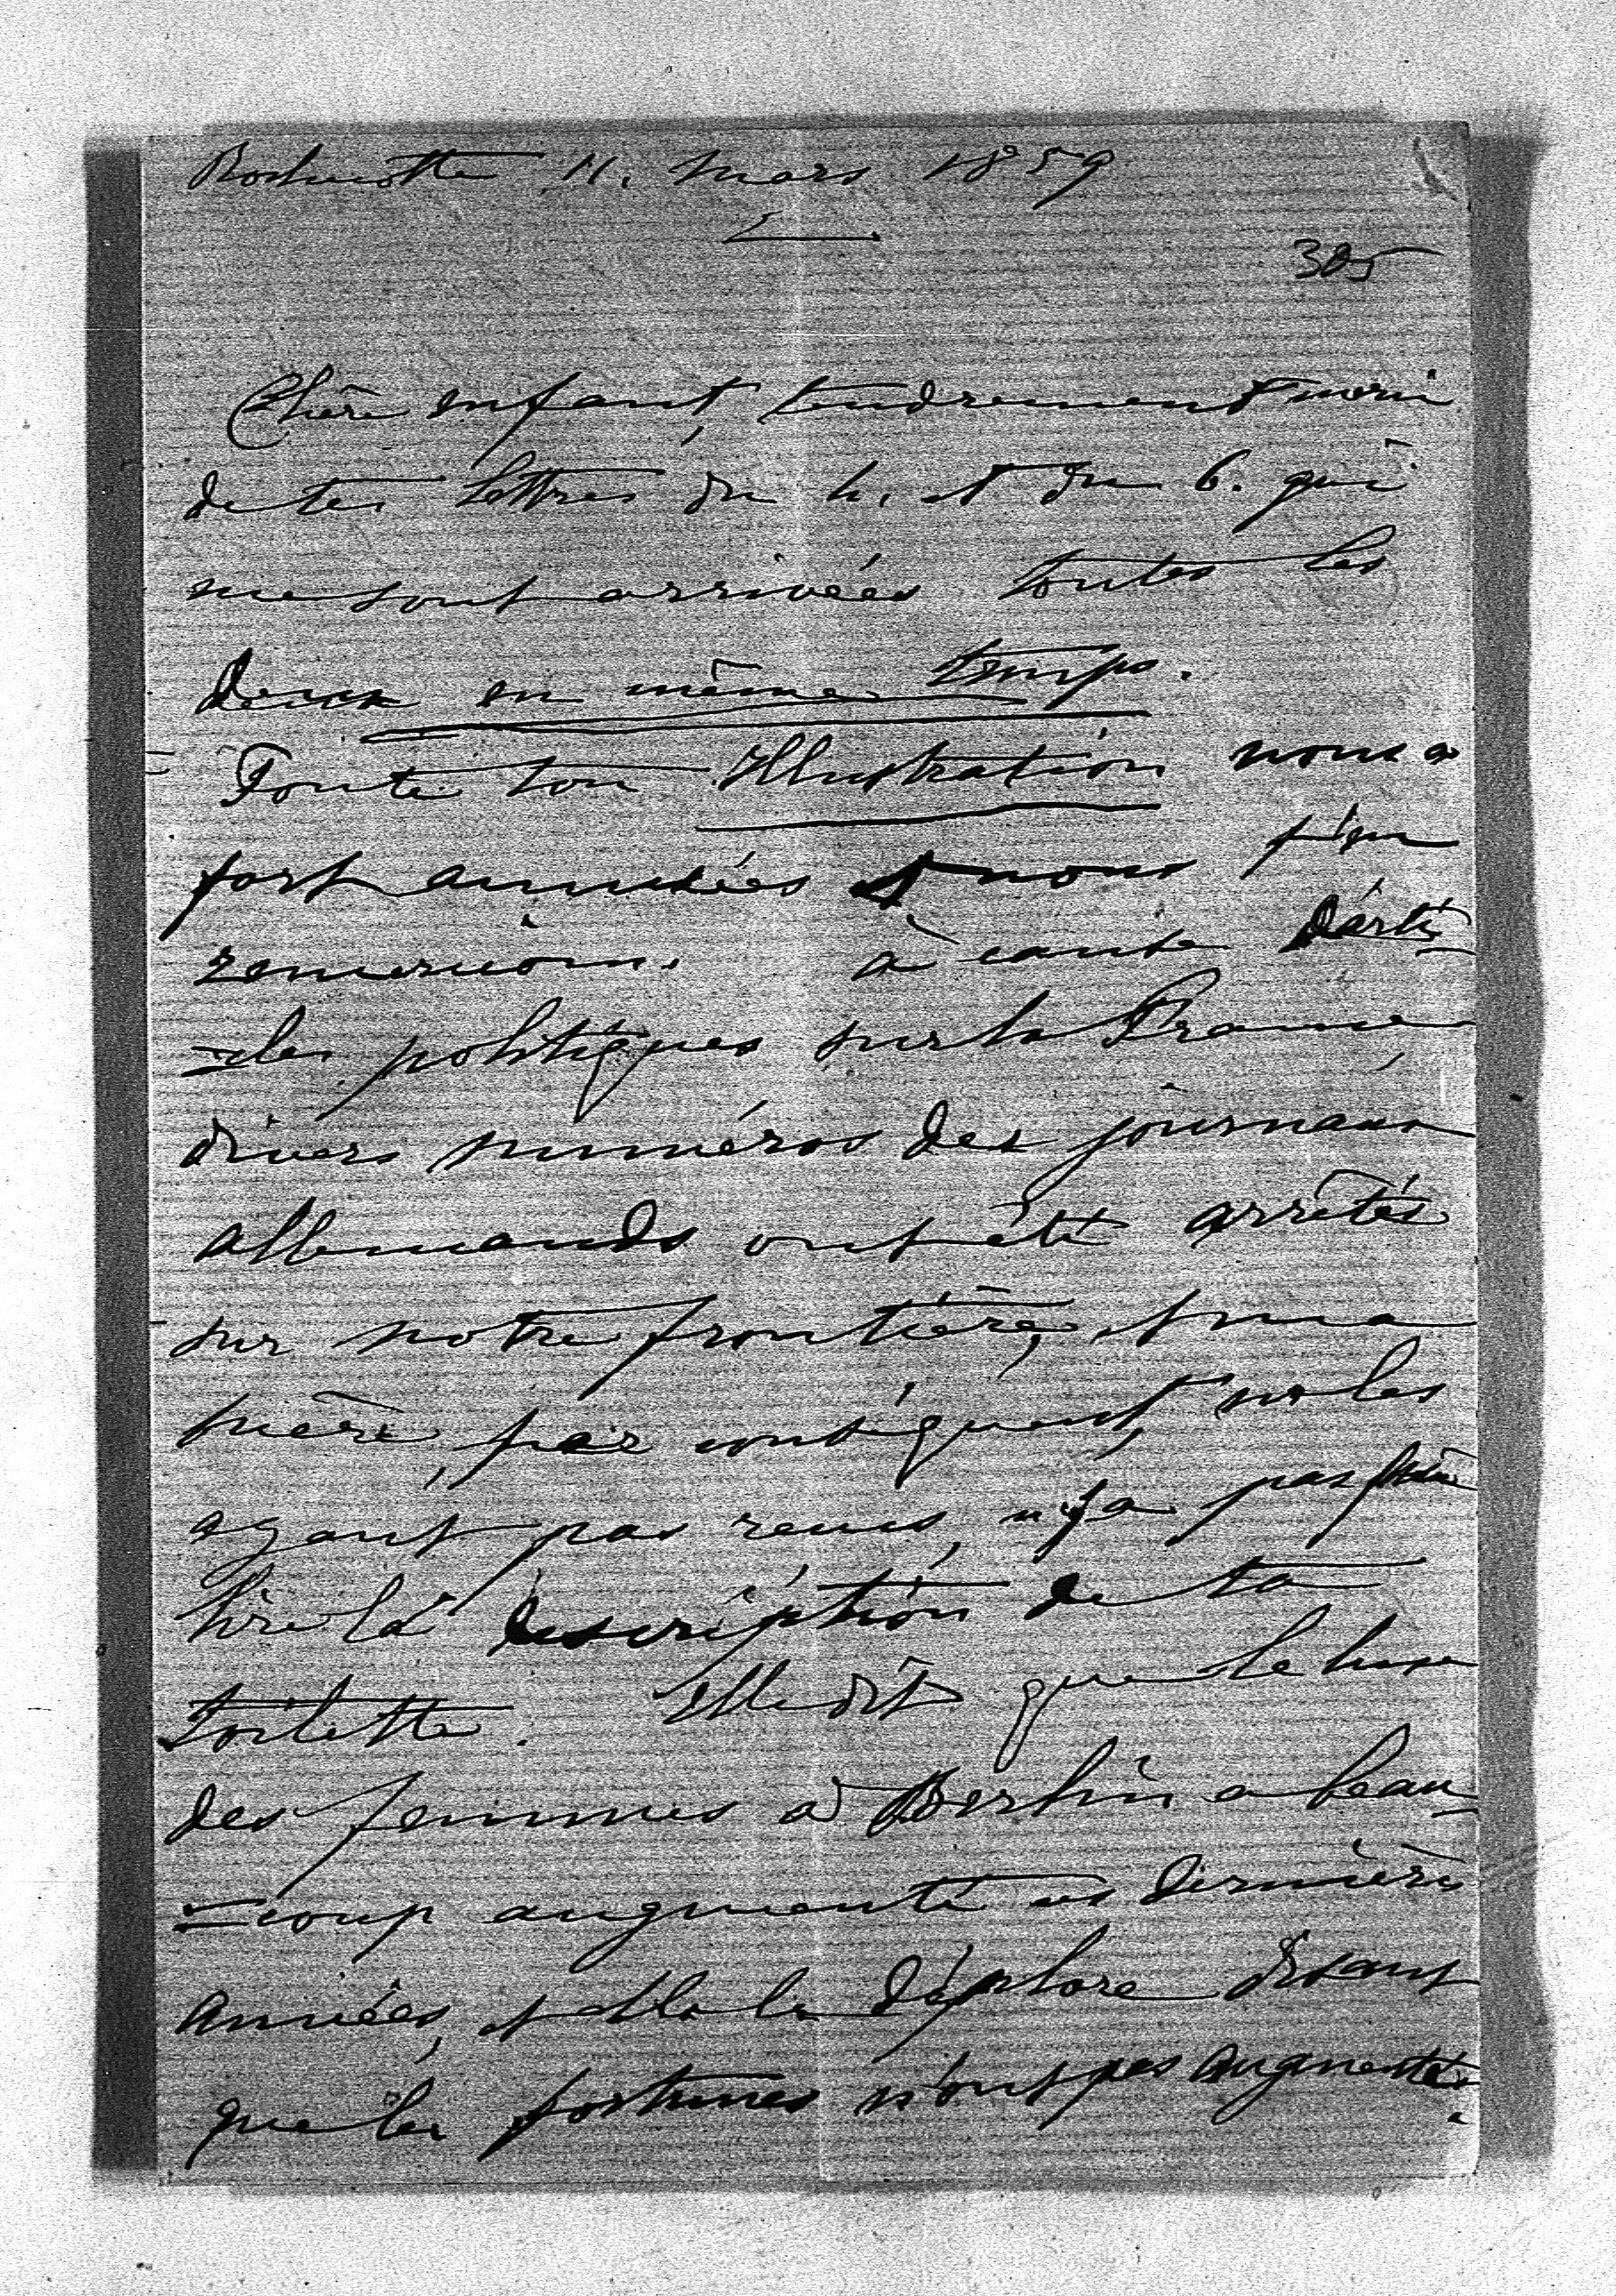 Rochecotte 11. mars 1859
385
Chère enfant, tendrement merci
de tes lettres du 4. et du 6. qui
me sont arrivées toutes les
deux en même temps.
Toute ton Illustration nous a
fort amusées et nous t'en
remercions. à cause d'arti
=cles politiques sur la France,
divers numéros des journaux
allemands ont été arrêtés
sur notre frontière, et ma
mère, par conséquent, ne les
ayant pas reçus, n'y a pas pu
lire la description de ta
toilette. Elle dit que le luxe
des femmes à Berlin a beau=
=coup augmenté ces dernières
années, et elle le déplore disant
que les fortunes n'ont pas augmenté.